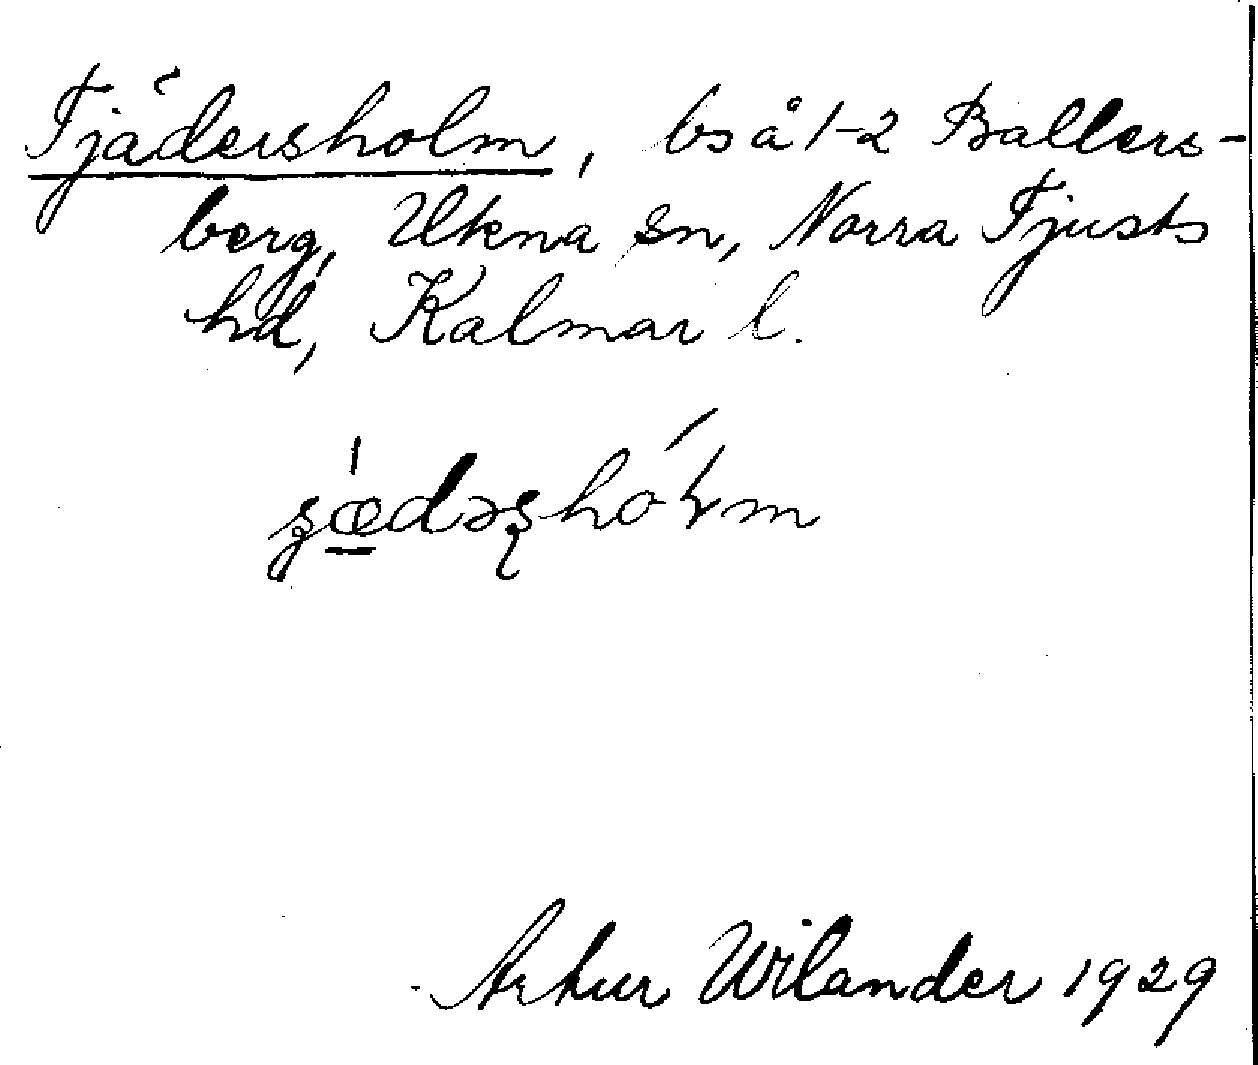 Tjädersholm, bs å 1-2 Ballers-
berg, Ukna sn, Norra Tjusts
hd, Kalmar l.
Artur Wilander 1929